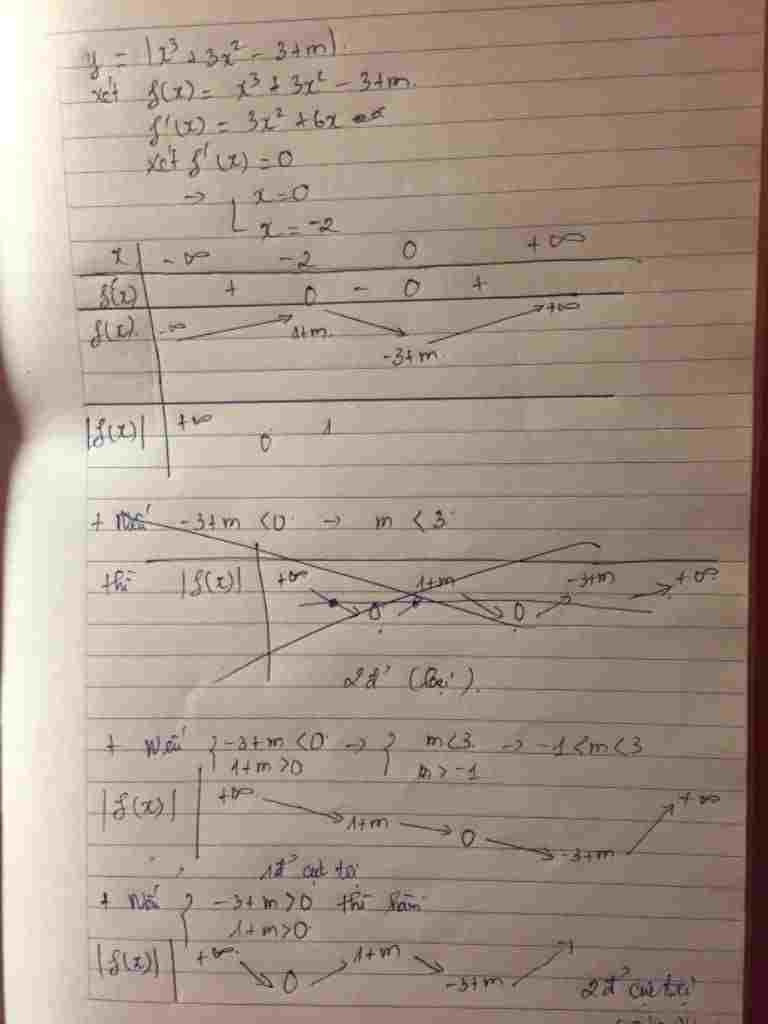 y = |x³ + 3x² - 3+m|
xét f(x) = x³ + 3x² - 3+m.
f'(x) = 3x² + 6x
xét f'(x) = 0
→ [ x = 0
x = -2
x | -∞ -2 0 +∞
f'(x) + 0 - 0 +
f(x) -∞ 1+m -3+m +∞
|f(x)| +∞ 0 1
+ Nếu -3+m < 0 → m < 3
thì |f(x)| +∞ 0 1+m 0 -3+m +∞
2đ' (loại).
+ Nếu { -3+m < 0 → { m < 3 → -1 < m < 3
1+m > 0 m > -1
|f(x)| +∞ 1+m 0 -3+m +∞
1đ' cực trị
+ Nếu { -3+m > 0 thì hàm
1+m > 0
|f(x)| +∞ 0 1+m -3+m
2đ' cực trị